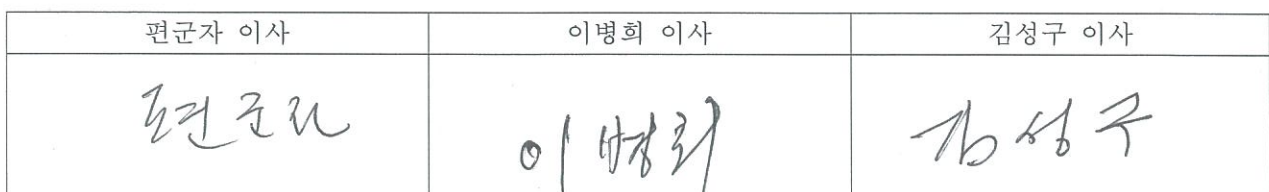 편군자 이사 이병희 이사 김성구 이사
편군자 이병희 김성구